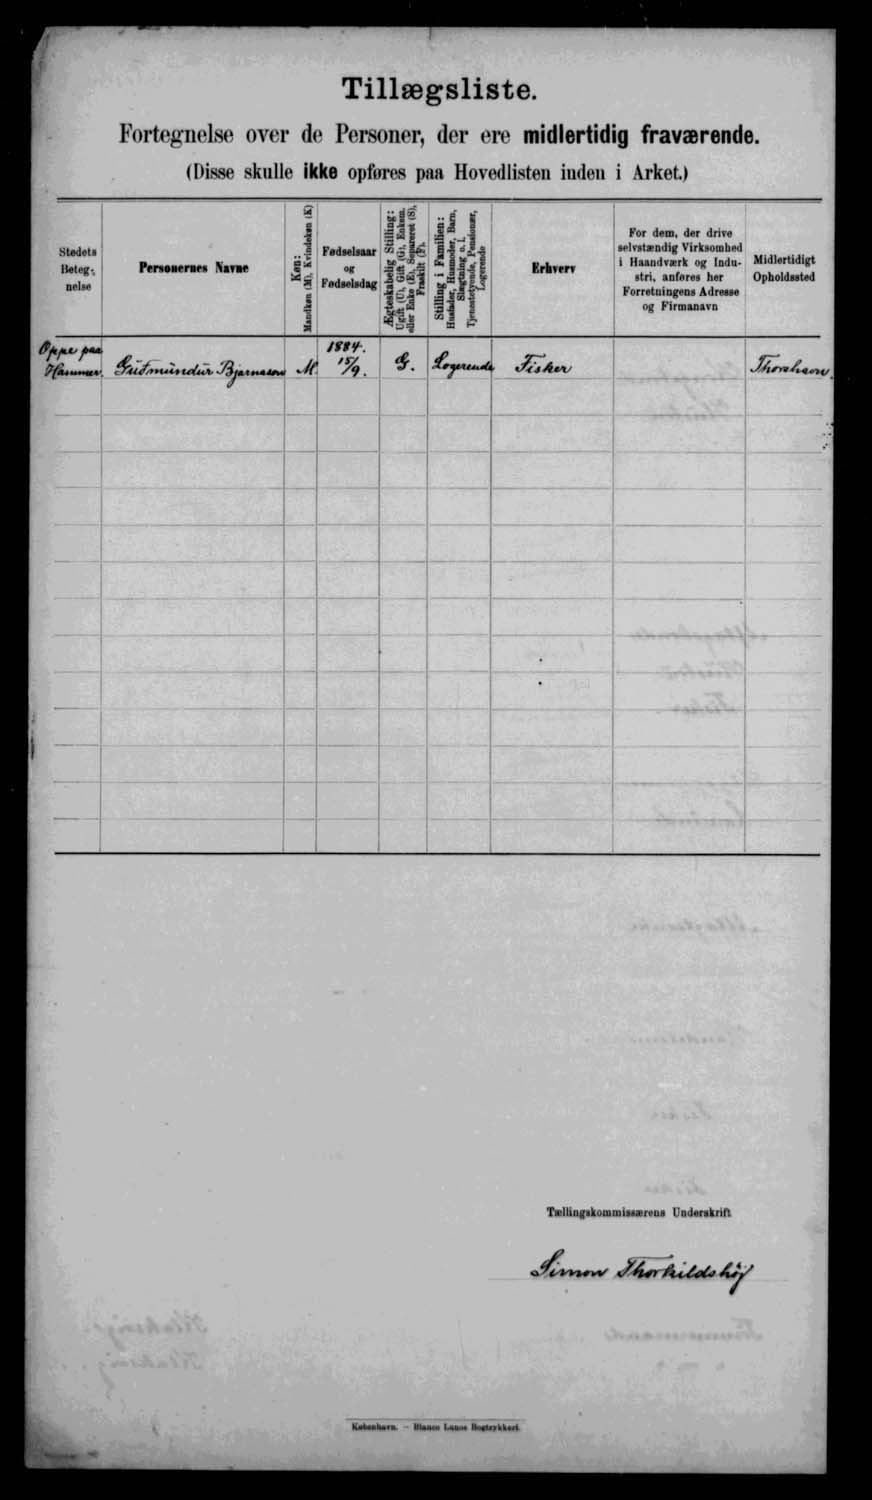 Tillægsliste.
Fortegnelse over de Personer, der ere midlertidig fraværende.
(Disse skulle ikke opføres paa Hovedlisten inden i Arket.)
Stedets
Beteg-
nelse
Personernes Navne
Køn:
Mandkøn (M), Kvindekøn (K)
Fødselsaar
og
Fødselsdag
Ægteskabelig Stilling:
Ugift (U), Gift (G), Enkem.
eller Enke (E), Separeret (S),
Fraskilt (F).
Stilling i Familien:
Husfader, Husmoder, Barn,
Slægtning o. l.
Tjenestetyende, Pensionær,
Logerende
Erhverv
For dem, der drive
selvstændig Virksomhed
i Haandværk og Indu-
stri, anføres her
Forretningens Adresse
og Firmanavn
Midlertidigt
Opholdssted
Oppe paa
Hammer.
Gudmúndúr Bjarnason
M.
1884.
15/9.
G.
Logerende
Fisker
Thorshavn.
Tællingskommissærens Underskrift
Simon Thorkildshøj
København. — Bianco Lunos Bogtrykkeri.